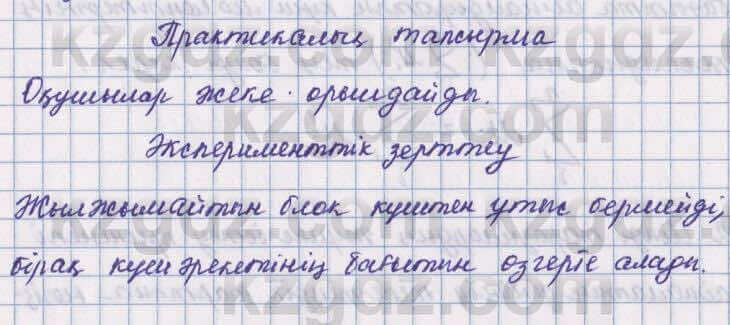 Практикалық тапсырма
Оқушылар жеке орындайды.
Эксперименттік зерттеу
Жылжымайтын блок күштен ұтыс бермейді,
бірақ күш әрекетінің бағытын өзгерте алады.
kzgdz.com